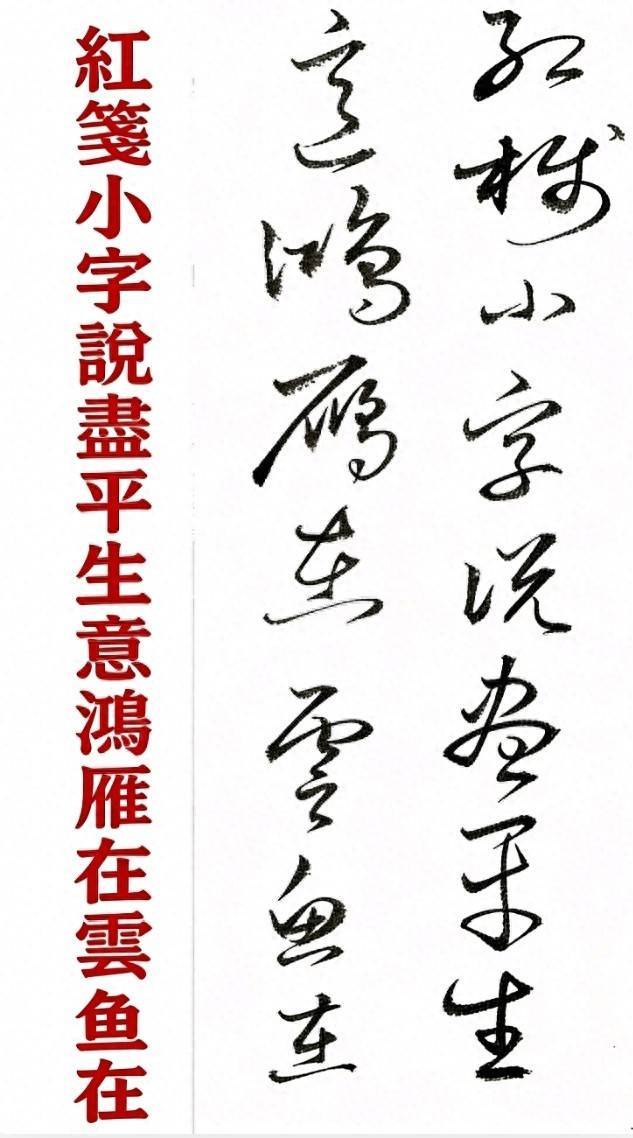 红笺小字说尽平生
意鸿雁在云鱼在
紅箋小字說盡平生意鴻雁在雲鱼在